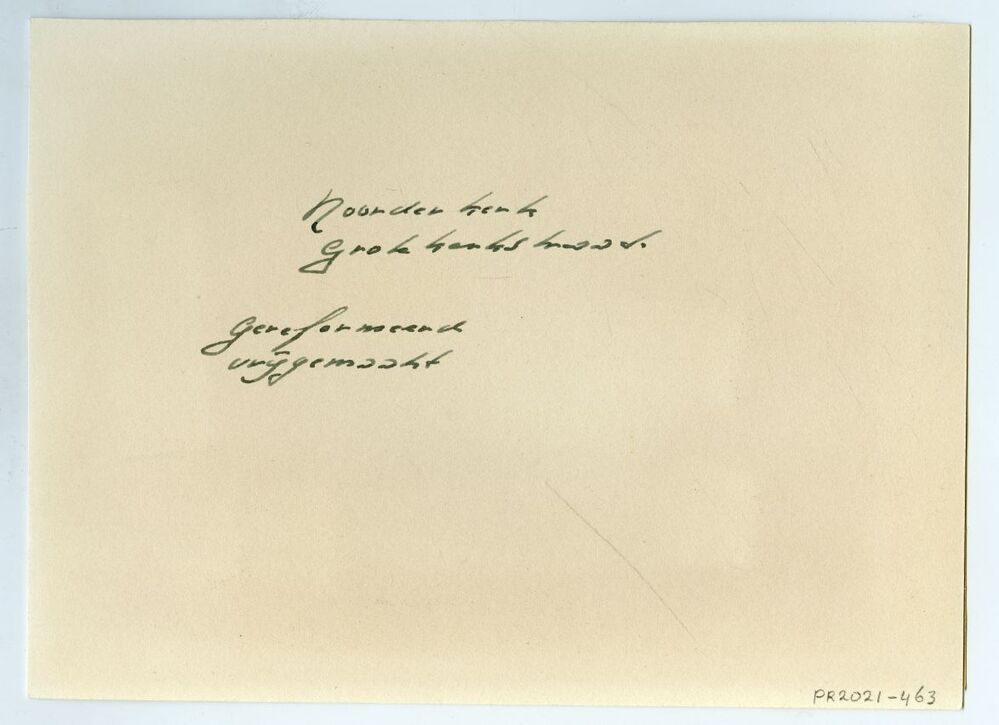 Noorderkerk
Grote kerkstraat.
Gereformeerd
vrijgemaakt
PR2021-463